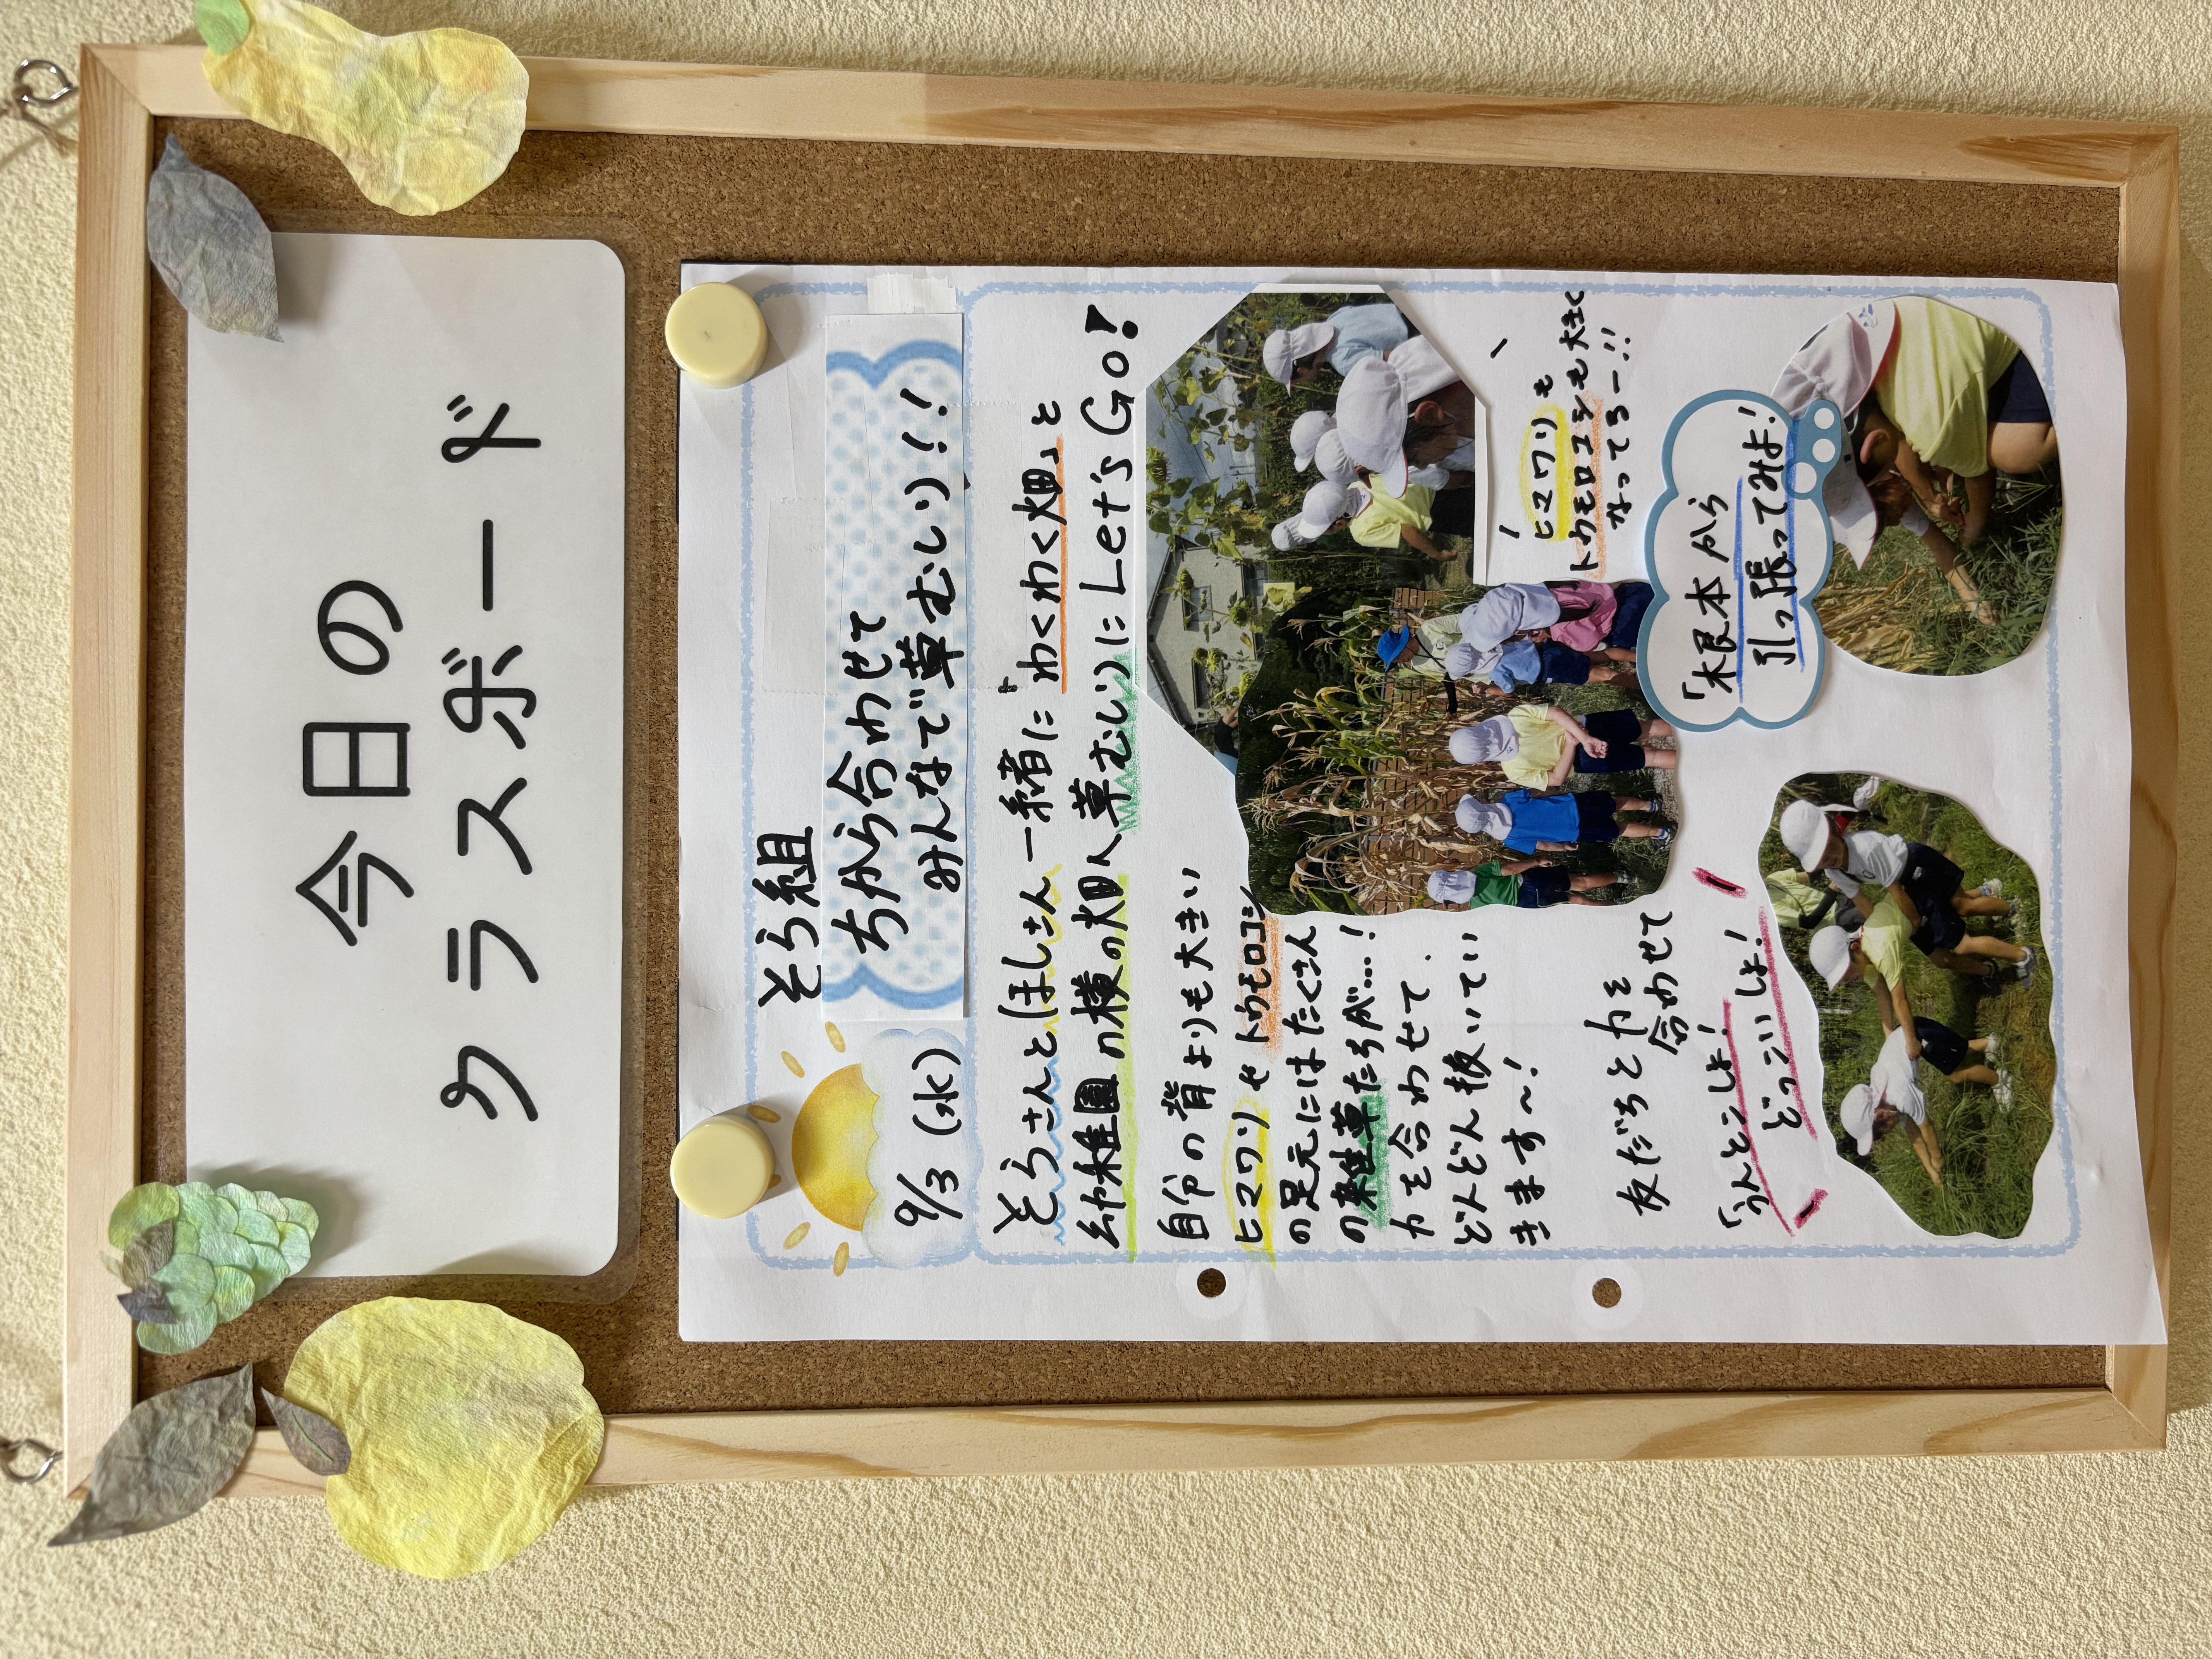 今日の
クラスボード
そら組
9/3(水)
ちから合わせて
みんなで草むしり!!
そらさんとほしさん一緒に「わくわく畑」と
幼稚園の横の畑へ草むしりにLet's Go!
自分の背よりも大きい
ヒマワリやトウモロコシ
の足元にはたくさん
の雑草たちが…!
力を合わせて、
どんどん抜いてい
きます〜!
ヒマワリも
トウモロコシも大きく
なってるー!!
「根本から
引っ張ってみよ!
友だちと力を
合わせて
「うんとこしょ!
どっこいしょ!